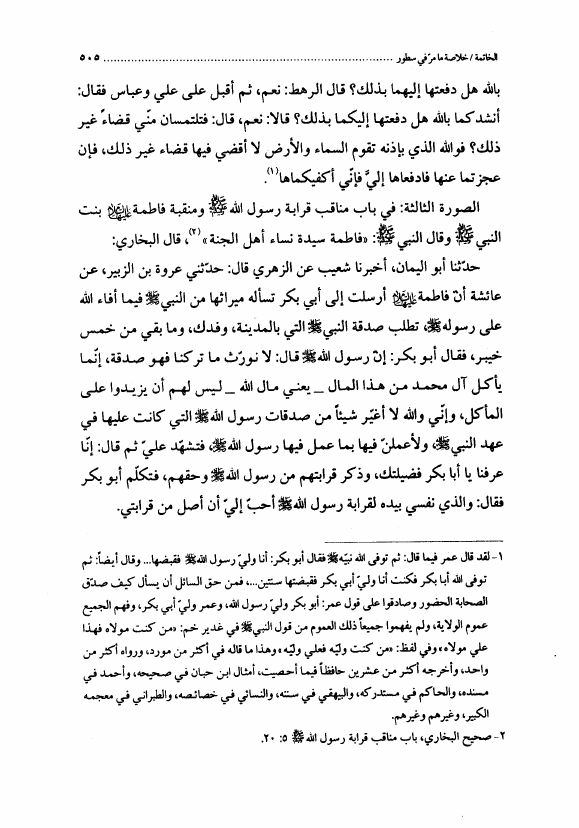 الخاتمة / خلاصة ما مرّ في سطور ................................................ ٥٠٥
بالله هل دفعتها إليهما بذلك؟ قال الرهط: نعم، ثم أقبل على علي وعباس فقال:
أنشدكما بالله هل دفعتها إليكما بذلك؟ قالا: نعم، قال: فتلتمسان منّي قضاءً غير
ذلك؟ فوالله الذي بإذنه تقوم السماء والأرض لا أقضي فيها قضاء غير ذلك، فإن
عجزتما عنها فادفعاها إليّ فإنّي أكفيكماها(١).
الصورة الثالثة: في باب مناقب قرابة رسول الله ﷺ ومنقبة فاطمة عليها السلام بنت
النبي ﷺ وقال النبي ﷺ: «فاطمة سيدة نساء أهل الجنة»(٢)، قال البخاري:
حدّثنا أبو اليمان، أخبرنا شعيب عن الزهري قال: حدّثني عروة بن الزبير، عن
عائشة أنّ فاطمة عليها السلام أرسلت إلى أبي بكر تسأله ميراثها من النبي ﷺ فيما أفاء الله
على رسوله ﷺ، تطلب صدقة النبي ﷺ التي بالمدينة، وفدك، وما بقي من خمس
خيبر، فقال أبو بكر: إنّ رسول الله ﷺ قال: لا نورّث ما تركنا فهو صدقة، إنّما
يأكل آل محمد من هذا المال _ يعني مال الله _ ليس لهم أن يزيدوا على
المأكل، وإنّي والله لا أغيّر شيئاً من صدقات رسول الله ﷺ التي كانت عليها في
عهد النبي ﷺ، ولأعملنّ فيها بما عمل فيها رسول الله ﷺ، فتشهّد عليّ ثم قال: إنّا
عرفنا يا أبا بكر فضيلتك، وذكر قرابتهم من رسول الله ﷺ وحقهم، فتكلّم أبو بكر
فقال: والذي نفسي بيده لقرابة رسول الله ﷺ أحبّ إليّ أن أصل من قرابتي.
١- لقد قال عمر فيما قال: ثم توفى الله نبيّه ﷺ فقال أبو بكر: أنا وليّ رسول الله ﷺ فقبضها... وقال أيضاً: ثم
توفى الله أبا بكر فكنت أنا وليّ أبي بكر فقبضتها سنتين...، فمن حق السائل أن يسأل كيف صدّق
الصحابة الحضور وصادقوا على قول عمر: أبو بكر وليّ رسول الله، وعمر وليّ أبي بكر، وفهم الجميع
عموم الولاية، ولم يفهموا جميعاً ذلك العموم من قول النبي ﷺ في غدير خم: «من كنت مولاه فهذا
علي مولاه» وفي لفظ: «من كنت وليّه فعلي وليّه» وهذا ما قاله في أكثر من مورد، ورواه أكثر من
واحد، وأخرجه أكثر من عشرين حافظاً فيما أحصيت، أمثال ابن حبان في صحيحه، وأحمد في
مسنده، والحاكم في مستدركه، والبيهقي في سننه، والنسائي في خصائصه، والطبراني في معجمه
الكبير، وغيرهم وغيرهم.
٢- صحيح البخاري، باب مناقب قرابة رسول الله ﷺ ٥: ٢٠.